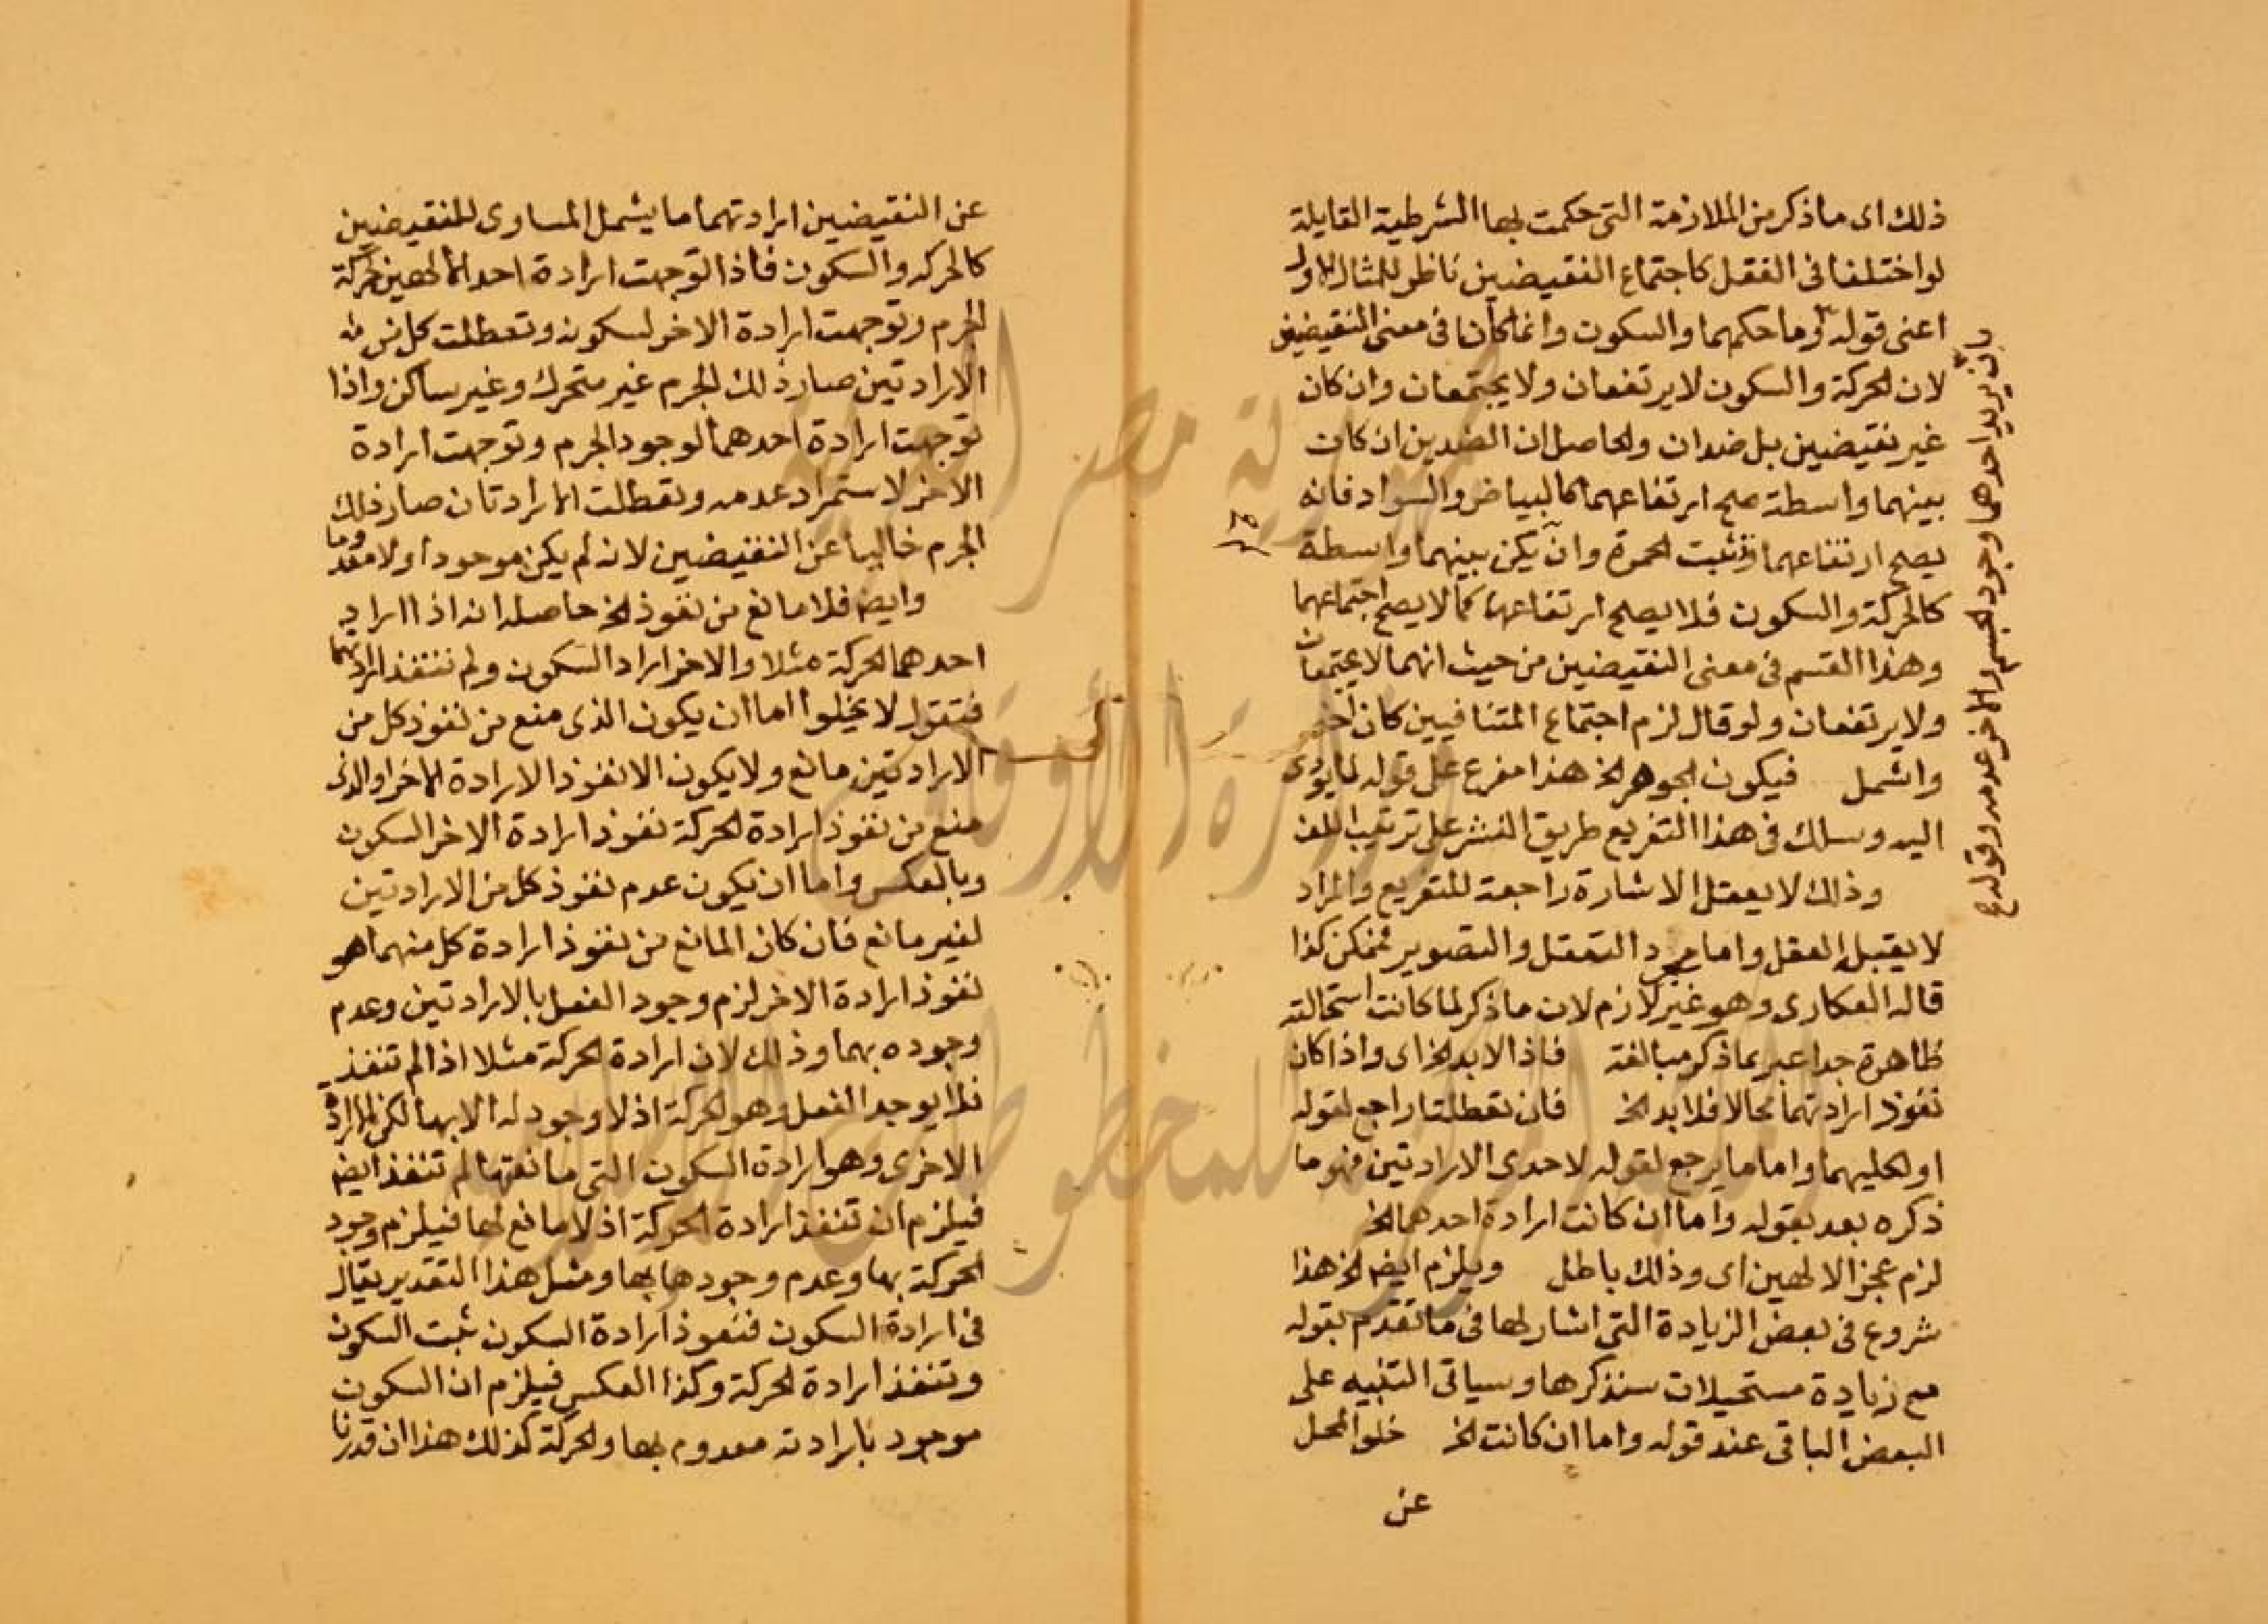 ذلك اى ما ذكر من الملازمة التى حكمت بها الشرطية القايلة
لو اختلفا فى الفعل كاجتماع النقيضين ناظر للمثال الاول
اعنى قوله وما حكمهما والسكون وانما كان فى معنى النقيضين
لان الحركة والسكون لا يرتفعان ولا يجتمعان وان كان
غير نقيضين بل ضدان والحاصل ان الضدين ان كان
بينهما واسطة صح ارتفاعهما كالبياض والسواد فانه
يصح ارتفاعهما وتثبت الحمرة وان يكن بينهما واسطة
كالحركة والسكون فلا يصح ارتفاعهما كما لا يصح اجتماعهما
وهذا القسم فى معنى النقيضين من حيث انهما لا يجتمعان
ولا يرتفعان ولو قال لزم اجتماع المتنافيين كان اخصر
واشمل فيكون الجوهر الخ هذا مفرع على قوله لما يؤدى
اليه وسلك فى هذا التفريع طريق النشر على ترتيب اللف
وذلك لا يعقل الاشارة راجعة للتفريع والمراد
لا يقبل العقل واما مجرد التعقل والتصوير فممكن كذا
قاله العكارى وهو غير لازم لان ما ذكر لما كانت استحالته
ظاهرة جدا عبر بما ذكر مبالغة فاذا لابد الخ اى واذا كان
نفوذ ارادتهما محالا فلا بد الخ فان تعطلتا راجع لقوله
او لكليهما واما ما يرجع لقوله لاحدى الارادتين فهو ما
ذكره بعد بقوله واما ان كانت ارادة احدهما الخ
لزم عجز الالهين اى وذلك باطل ويلزم ايضا الخ هذا
شروع فى بعض الزيادة التى اشار لها فى ما تقدم بقوله
مع زيادة مستحيلات سنذكرها وسياتى التنبيه على
البعض الباقى عند قوله واما ان كانت الخ خلو المحل
عن
بان يريد احدهما وجود الجسم والاخر عدمه وقوله
عن النقيضين ارادتهما ما يشمل المساوى للنقيضين
كالحركه والسكون فاذا توجهت ارادة احد الالهين لحركة
الجرم وتوجهت ارادة الاخر لسكونه وتعطلت كل من
الارادتين صار ذلك الجرم غير متحرك وغير ساكن واذا
توجهت ارادة احدهما لوجود الجرم وتوجهت ارادة
الاخر لاستمراد عدمه وتعطلت الارادتان صار ذلك
الجرم خاليا عن النقيضين لانه لم يكن موجودا ولا معدوما
وايضا فلا مانع من نفوذ الخ حاصله انه اذا اراد
احدهما الحركة مثلا والاخر اراد السكون ولم تنفذ ارادتهما
فتقول لا يخلوا اما ان يكون الذى منع من نفوذ كل من
الارادتين مانع ولا يكون الا نفوذ الارادة الاخر او الذى
منع من نفوذ ارادة الحركة نفوذ ارادة الاخر السكون
وبالعكس واما ان يكون عدم نفوذ كل من الارادتين
لغير مانع فان كان المانع من نفوذ ارادة كل منهما هو
نفوذ ارادة الاخر لزم وجود الفعل بالارادتين وعدم
وجوده بهما وذلك لان ارادة الحركة مثلا اذا لم تنفذ
فلا يوجد الفعل وهو الحركة اذ لا وجود له الا بها لكن الارادة
الاخرى وهو ارادة السكون التى مانعتها لم تنفذ ايضا
فيلزم ان تنفذ ارادة الحركة اذ لا مانع لها فيلزم وجود
الحركة بها وعدم وجودها بها ومثل هذا التقدير يقال
فى ارادة السكون فنفوذ ارادة السكون تثبت السكون
وتنفذ ارادة الحركة وكذا العكس فيلزم ان السكون
موجود بارادته معدوم بها والحركة كذلك هذا ان قدرنا
جمهورية مصر العربية
وزارة الأوقاف
المكتبة المركزية للمخطوطات الإسلامية